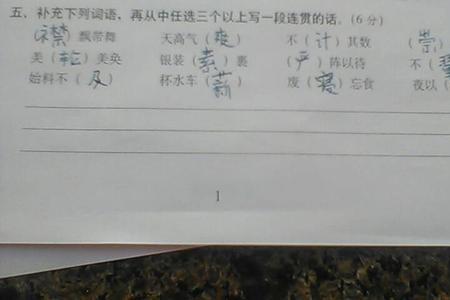 五、补充下列词语、再从中任选三个以上写一段连贯的话。(6 分)
(襟)飘带舞 天高气(爽) 不(计)其数 (崇)
美(轮)美奂 银装(素)裹 (严)阵以待 不(
始料不(及) 杯水车(薪) 废(寝)忘食 夜以(
1